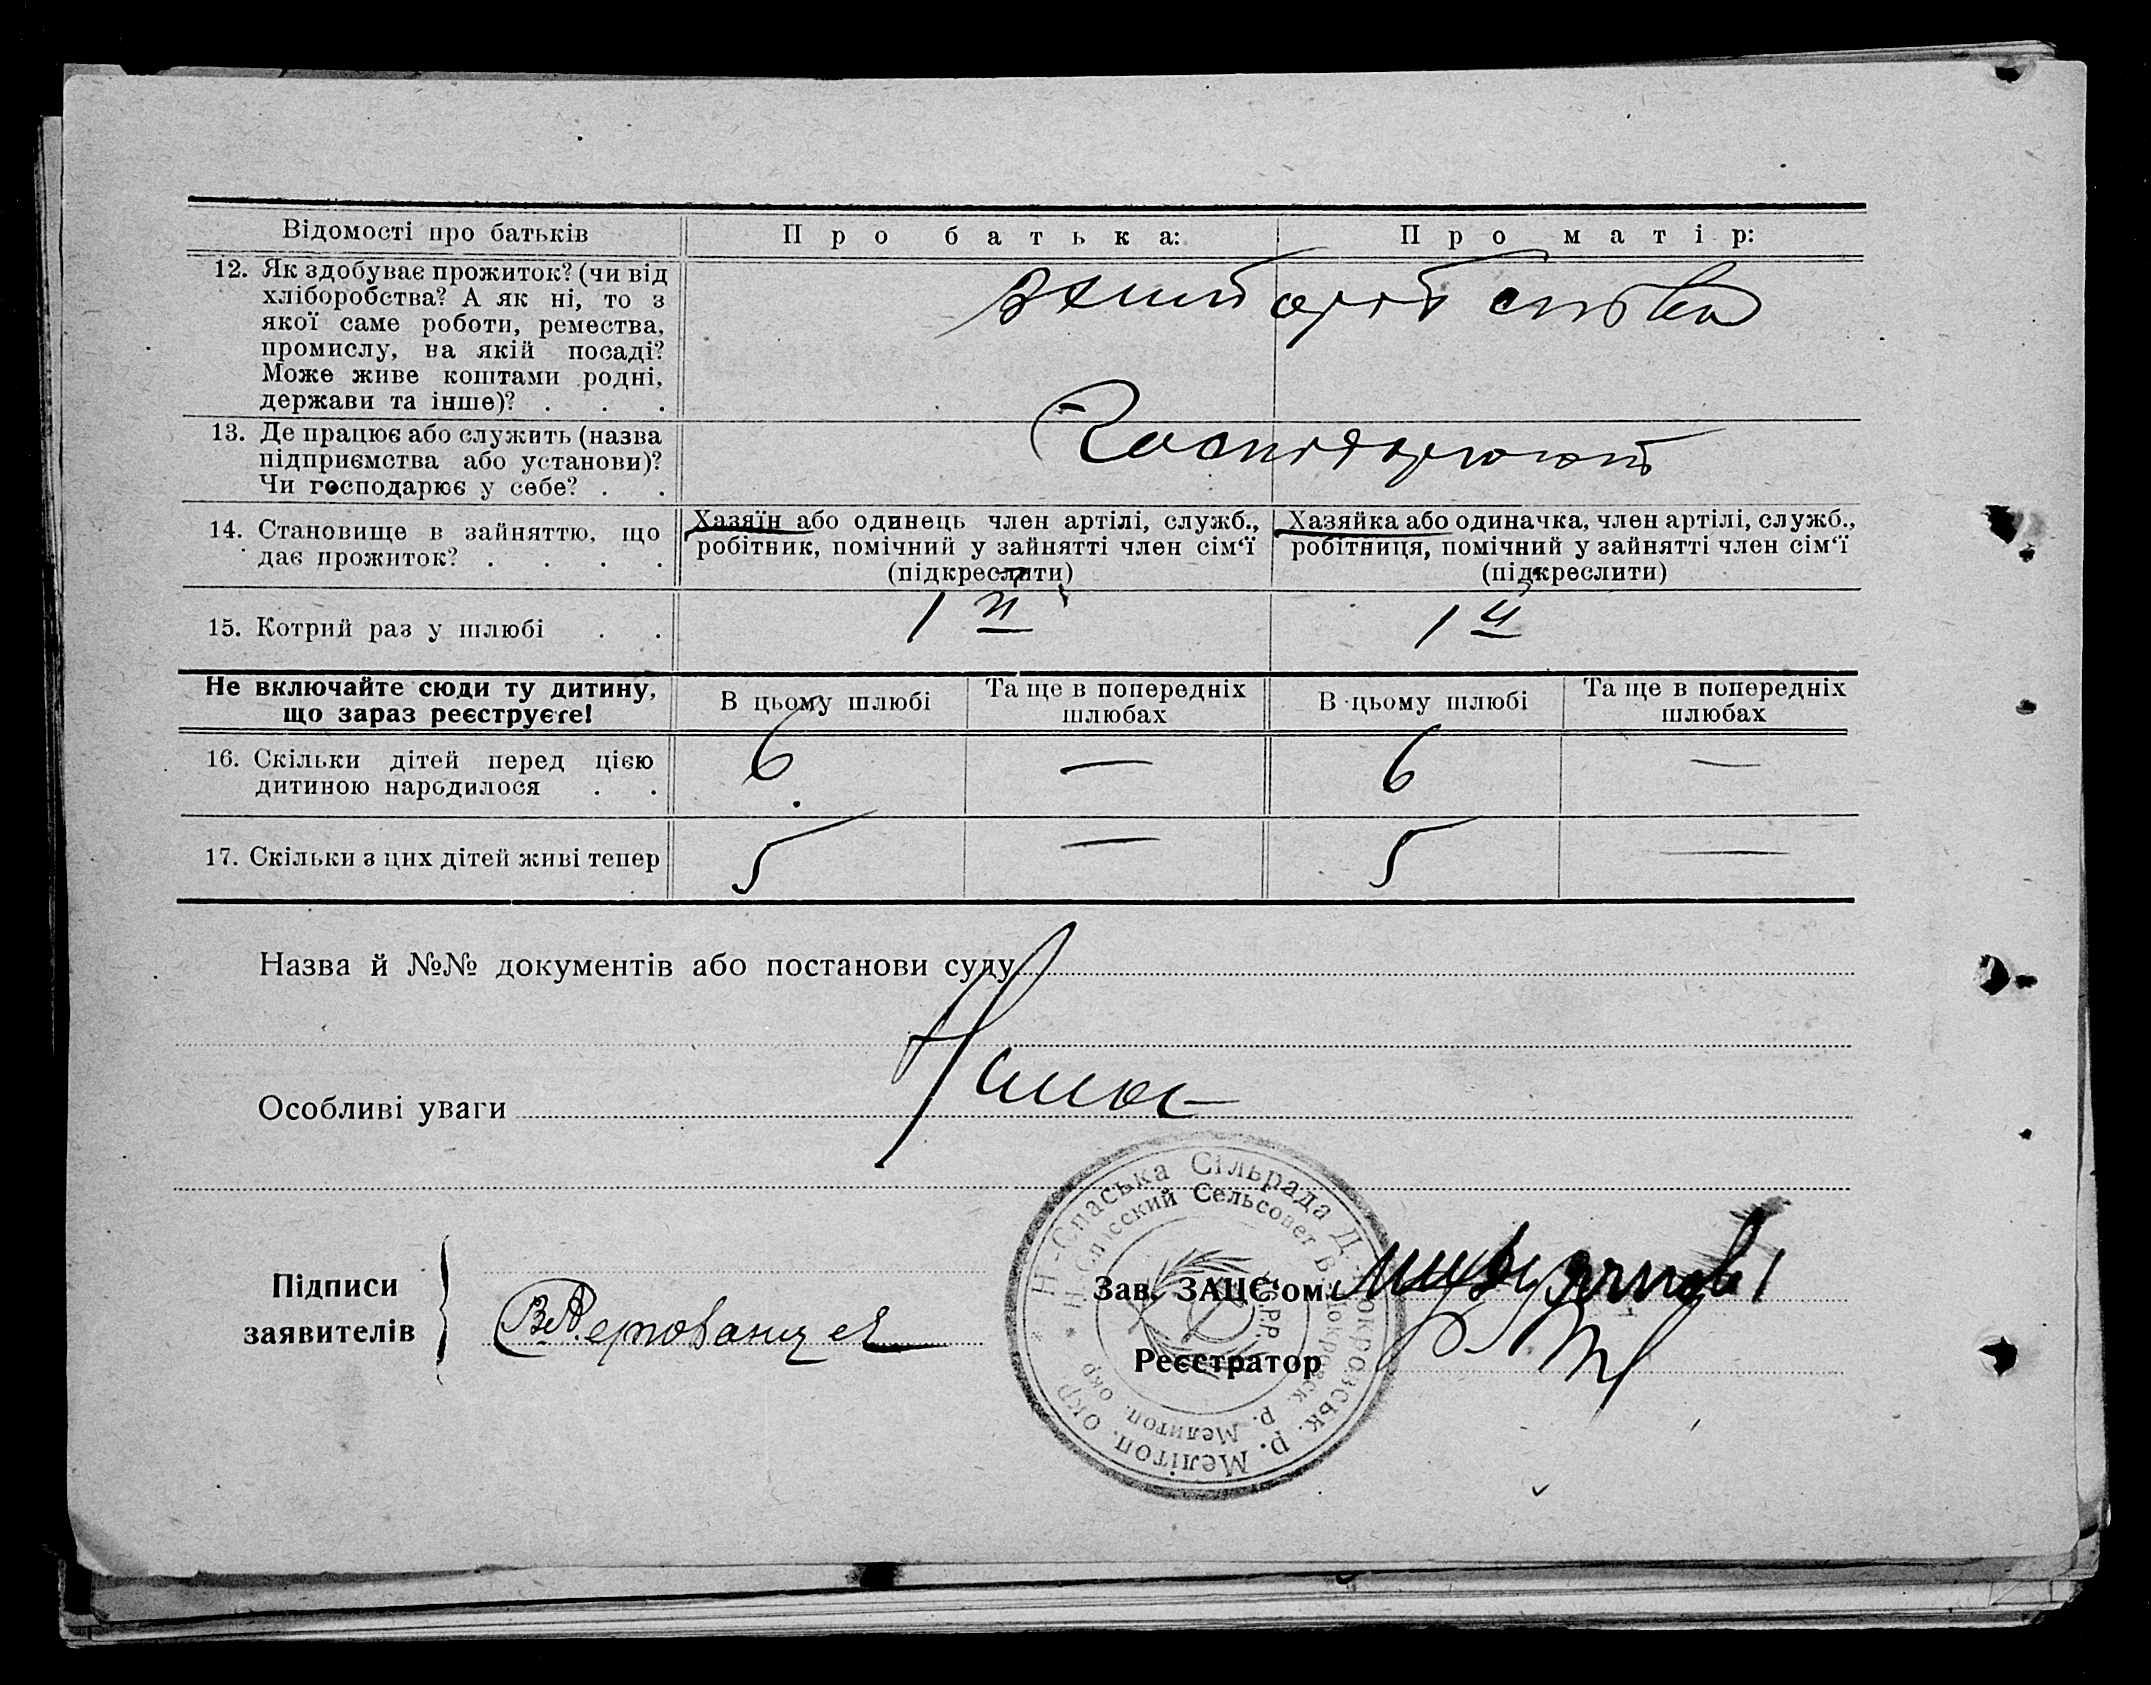 Відомості про батьків
Про батька:
Про матір:
12. Як здобуває прожиток? (чи від
хліборобства? А як ні, то з
якої саме роботи, ремества,
промислу, на якій посаді?
Може живе коштами родні,
держави та інше)? . . .
13. Де працює або служить (назва
підприємства або установи)?
Чи господарює у себе? . .
Господарюють
14. Становище в зайняттю, що
дає прожиток? . . . .
Хазяїн або одинець член артілі, служб.,
робітник, помічний у зайнятті член сім'ї
(підкреслити)
Хазяйка або одиначка, член артілі, служб.,
робітниця, помічний у зайнятті член сім'ї
(підкреслити)
15. Котрий раз у шлюбі . .
1й
1й
Не включайте сюди ту дитину,
що зараз реєструєте!
В цьому шлюбі
Та ще в попередніх
шлюбах
В цьому шлюбі
Та ще в попередніх
шлюбах
16. Скільки дітей перед цією
дитиною народилося . .
6
—
6
—
17. Скільки з цих дітей живі тепер
5
—
5
—
Назва й №№ документів або постанови суду
Особливі уваги
Підписи
заявителів
Зав. ЗАЦС'ом
Реєстратор
Н-Спаська Сільрада Д.-Покровськ. р. Мелітоп. окр
Сельсовет Мелитоп. окр